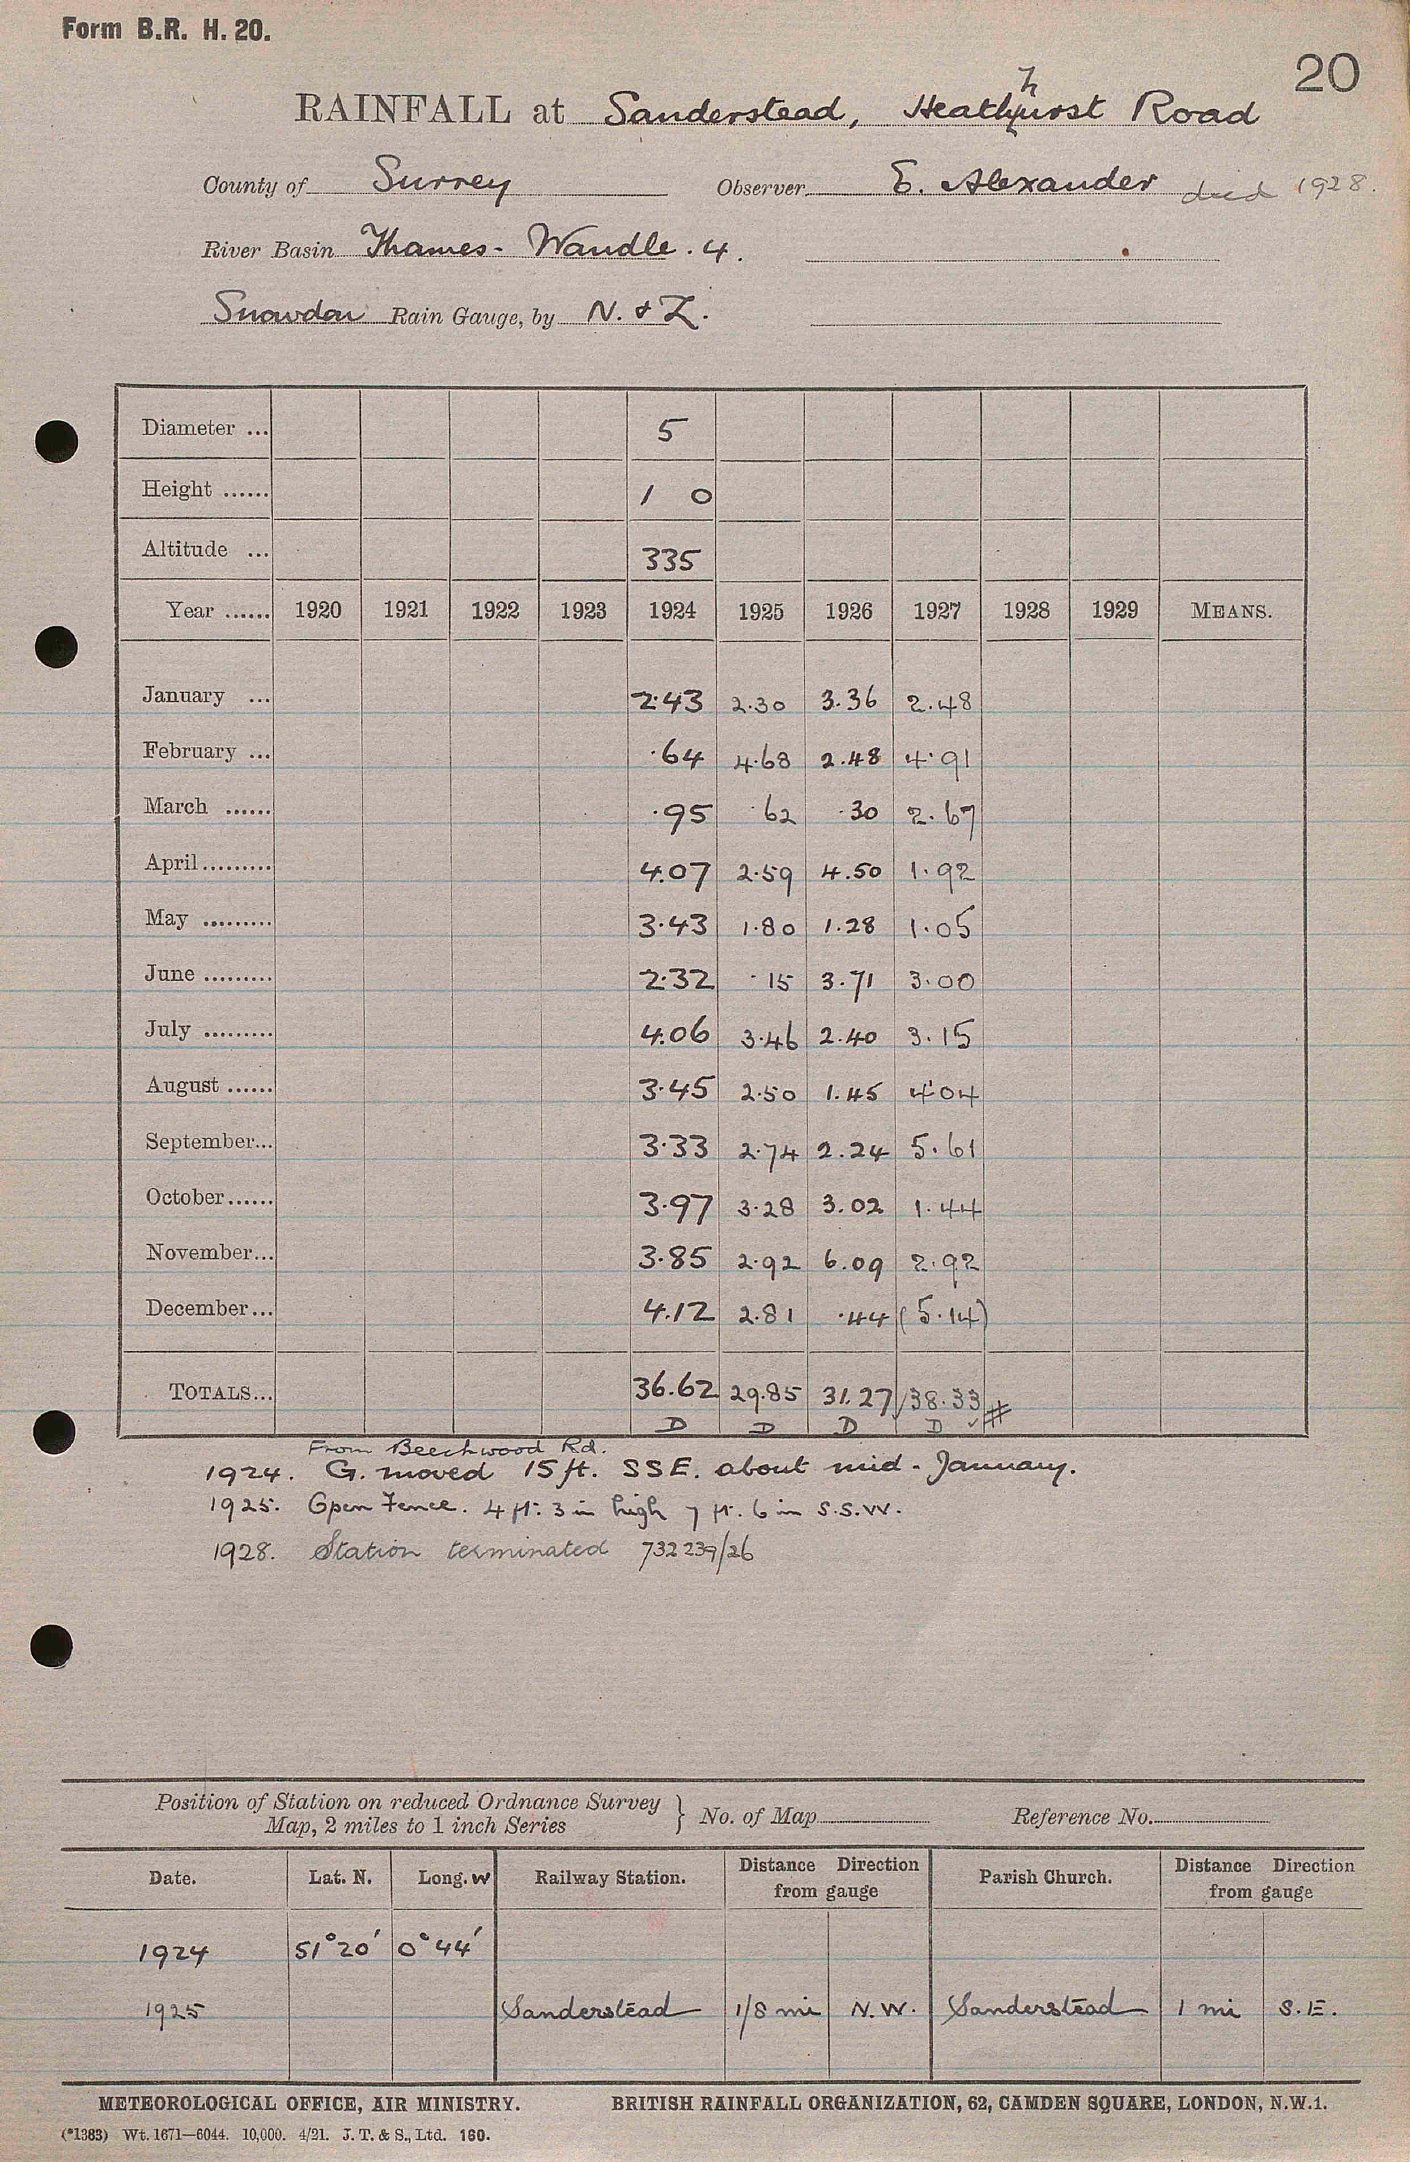 Form B.R. H. 20.
20
RAINFALL at Sanderstead, Heathhurst Road
County of Surrey Observer E. Alexander died 1928.
River Basin Thames - Wandle . 4 .
Snowdon Rain Gauge, by N. & Z.
Diameter ... 5
Height ...... 1 0
Altitude ... 335
Year ...... 1920 1921 1922 1923 1924 1925 1926 1927 1928 1929 MEANS.
January ... 2.43 2.30 3.36 2.48
February ... .64 4.68 2.48 4.91
March ...... .95 .62 .30 2.67
April ......... 4.07 2.59 4.50 1.92
May ......... 3.43 1.80 1.28 1.05
June ......... 2.32 .15 3.71 3.00
July ......... 4.06 3.46 2.40 3.15
August ...... 3.45 2.50 1.45 4.04
September... 3.33 2.74 2.24 5.61
October...... 3.97 3.28 3.02 1.44
November... 3.85 2.92 6.09 2.92
December... 4.12 2.81 .44 (5.14)
TOTALS... 36.62 29.85 31.27 38.33 #
D D D D ✓
From Beechwood Rd.
1924. G. moved 15 ft. SSE. about mid - January.
1925. Open Fence. 4 ft. 3 in high 7 ft. 6 in S.S.W.
1928. Station terminated 732239/26
Position of Station on reduced Ordnance Survey
Map, 2 miles to 1 inch Series } No. of Map Reference No.
Date. Lat. N. Long. W Railway Station. Distance Direction from gauge Parish Church. Distance Direction from gauge
1924 51°20′ 0°44′
1925 Sanderstead 1/8 mi N.W. Sanderstead 1 mi S.E.
METEOROLOGICAL OFFICE, AIR MINISTRY. BRITISH RAINFALL ORGANIZATION, 62, CAMDEN SQUARE, LONDON, N.W.1.
(*1383) Wt. 1671—6044. 10,000. 4/21. J. T. & S., Ltd. 160.